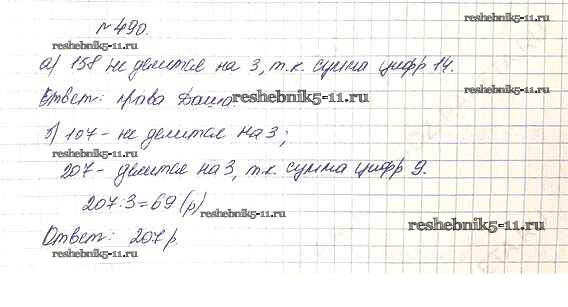 №490.
reshebnik5-11.ru
а) 158 не делится на 3, т.к. сумма цифр 14.
reshebnik5-11.ru
Ответ: права Даша. reshebnik5-11.ru
б) 107 - не делится на 3;
reshebnik5-11.ru
207 - делится на 3, т.к. сумма цифр 9.
207:3=69 (р) reshebnik5-11.ru
reshebnik5-11.ru
Ответ: 207 р.
reshebnik5-11.ru